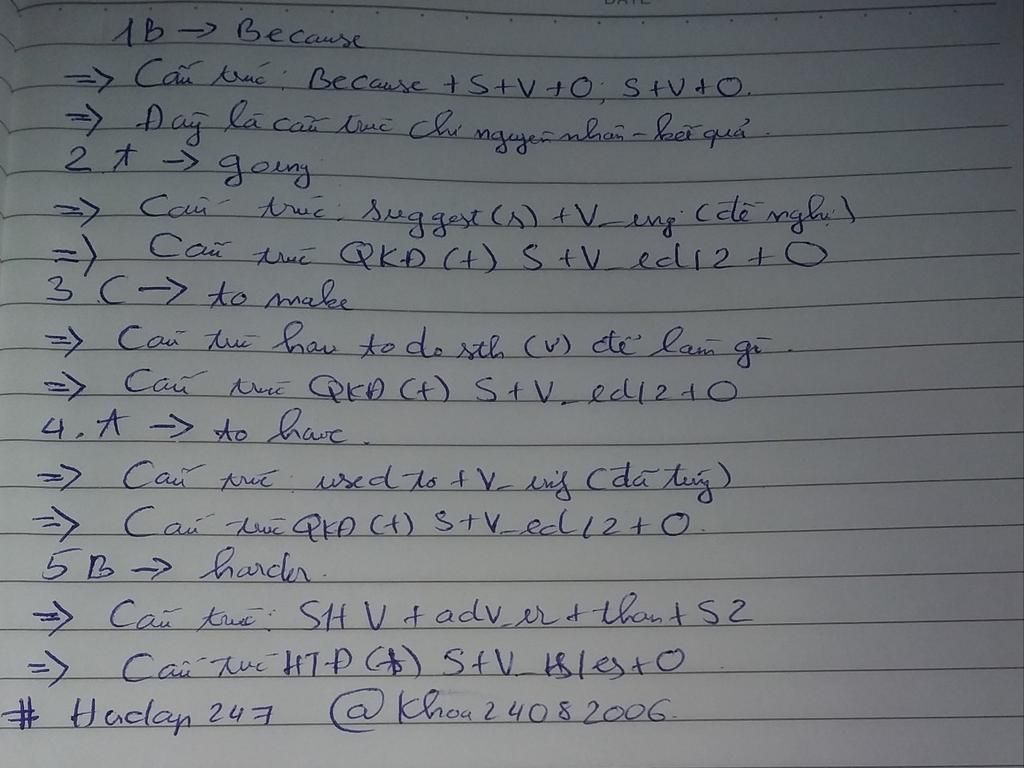 1B → Because
=> Cấu trúc: Because + S+V+O, S+V+O.
=> Đây là cấu trúc chỉ nguyên nhân - kết quả.
2 A → going
=> Cấu trúc: suggest(s) + V_ing (đề nghị)
=> Cấu trúc QKĐ (+) S+V_ed/2 + O
3 C → to make
=> Cấu trúc have to do sth (v) để làm gì.
=> Cấu trúc QKĐ (+) S+V_ed/2+O
4. A → to have.
=> Cấu trúc: used to + V_ing (đã từng)
=> Cấu trúc QKĐ (+) S+V_ed/2+O.
5 B → harder.
=> Cấu trúc: S1+V + adv_er + than + S2
=> Cấu trúc HTĐ (+) S+V_s/es+O
# Hoidap247 @Khoa24082006.